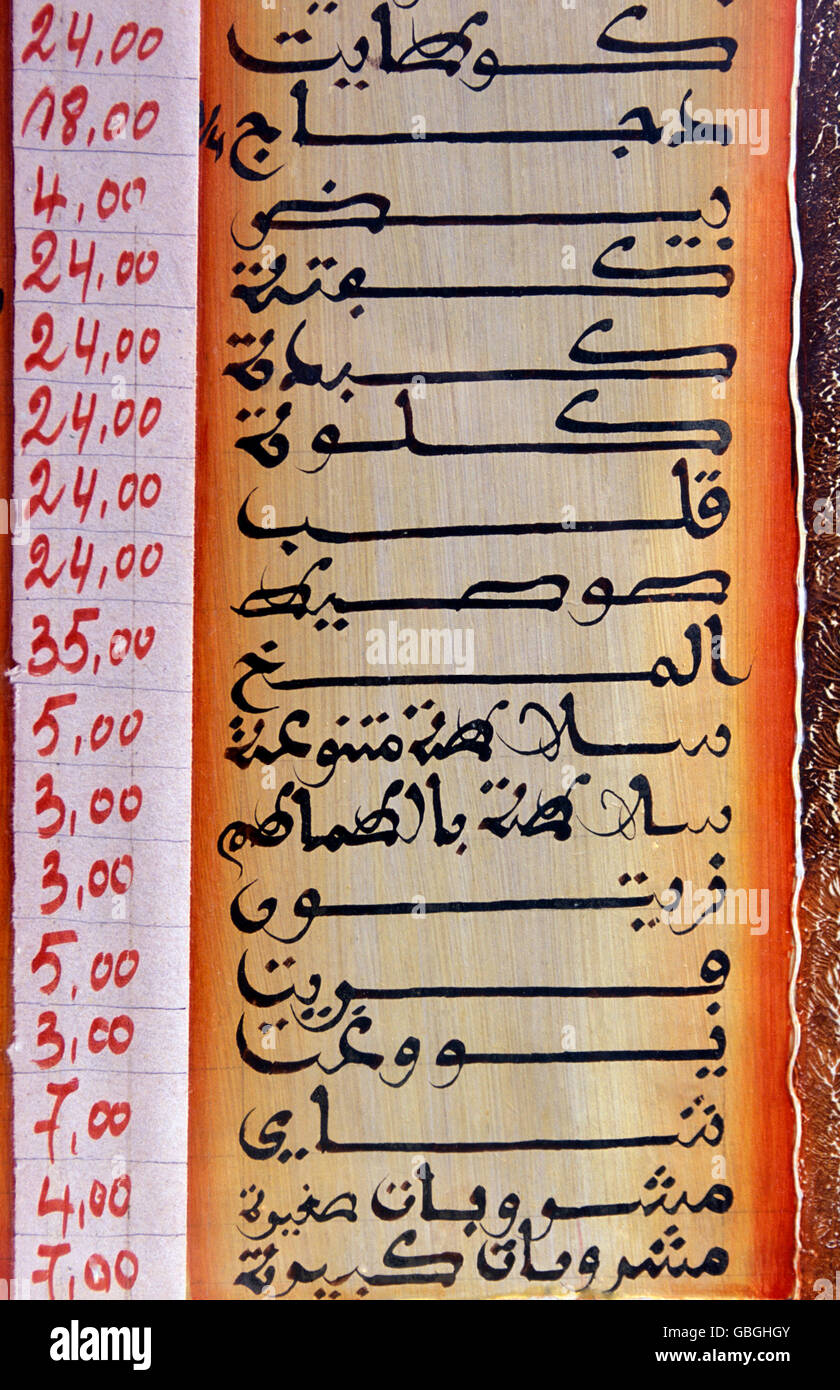 24,00 كوطليت
18,00 دجاج 1/4
4,00 بيض
24,00 كفتة
24,00 كبدة
24,00 كلوة
24,00 قلب
24,00 صوصيط
35,00 المخ
5,00 سلاطة متنوعة
3,00 سلاطة بالطماطم
3,00 زيتون
5,00 فريت
3,00
7,00 شاي
4,00 مشروبات صغيرة
7,00 مشروبات كبيرة
alamy
Image ID: GBGHGY
www.alamy.com